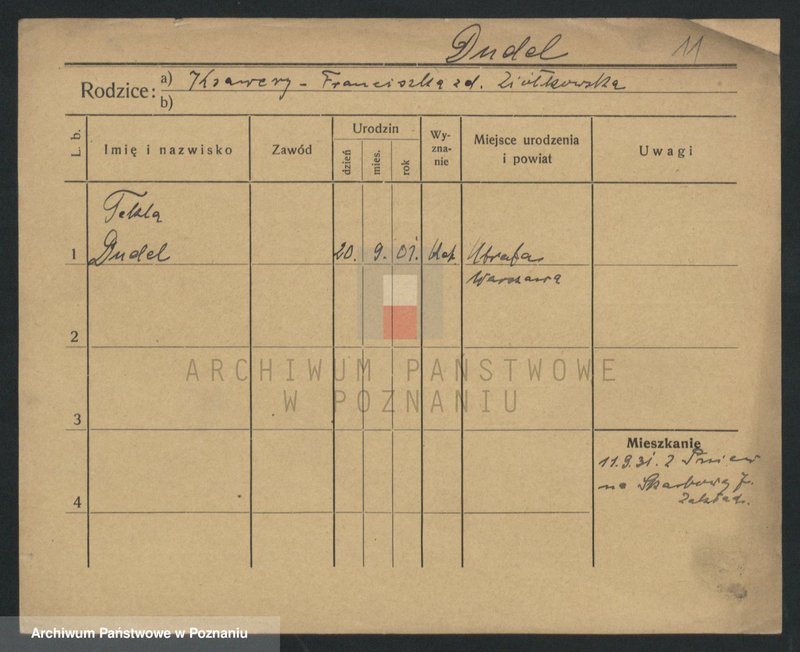 Dudel 11
Rodzice: a) Ksawery - Franciszka zd. Ziółkowska
b)
L. b.
Imię i nazwisko
Zawód
Urodzin
dzień
mies.
rok
Wy-
zna-
nie
Miejsce urodzenia
i powiat
Uwagi
Tekla
1 Dudel 20. 9. 01.
Warszawa
2
ARCHIWUM PAŃSTWOWE
W POZNANIU
3
Mieszkanie
11.9.31. z Pniew
na
4
Archiwum Państwowe w Poznaniu